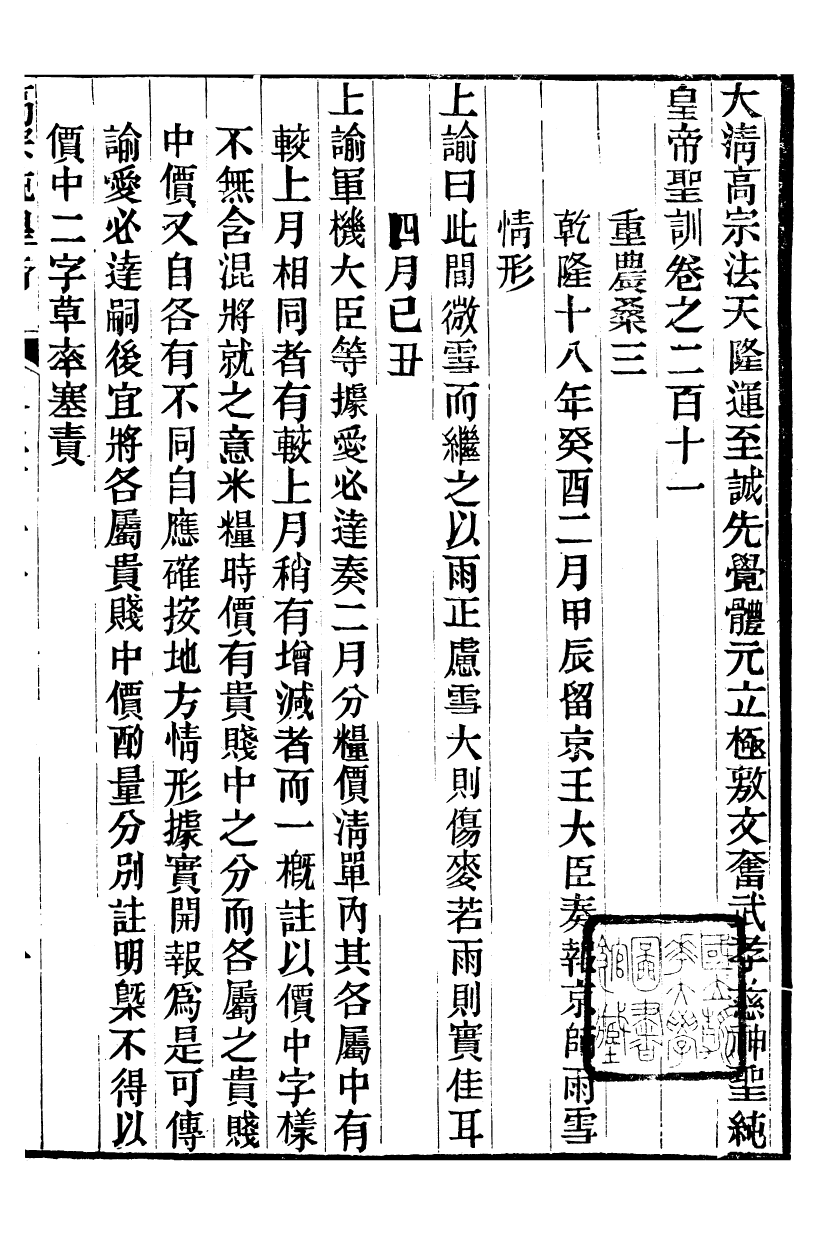 大清高宗法天隆運至誠先覺體元立極敷文奮武孝慈神聖純
皇帝聖訓卷之二百十一
重農桑三
乾隆十八年癸酉二月甲辰留京王大臣奏報京師雨雪
情形
上諭曰此間微雪而繼之以雨正慮雪大則傷麥若雨則實佳耳
四月己丑
上諭軍機大臣等據愛必達奏二月分糧價清單內其各屬中有
較上月相同者有較上月稍有增減者而一概註以價中字樣
不無含混將就之意米糧時價有貴賤中之分而各屬之貴賤
中價又自各有不同自應確按地方情形據實開報爲是可傳
諭愛必達嗣後宜將各屬貴賤中價酌量分別註明槩不得以
價中二字草率塞責
國立
大學
圖書
館藏